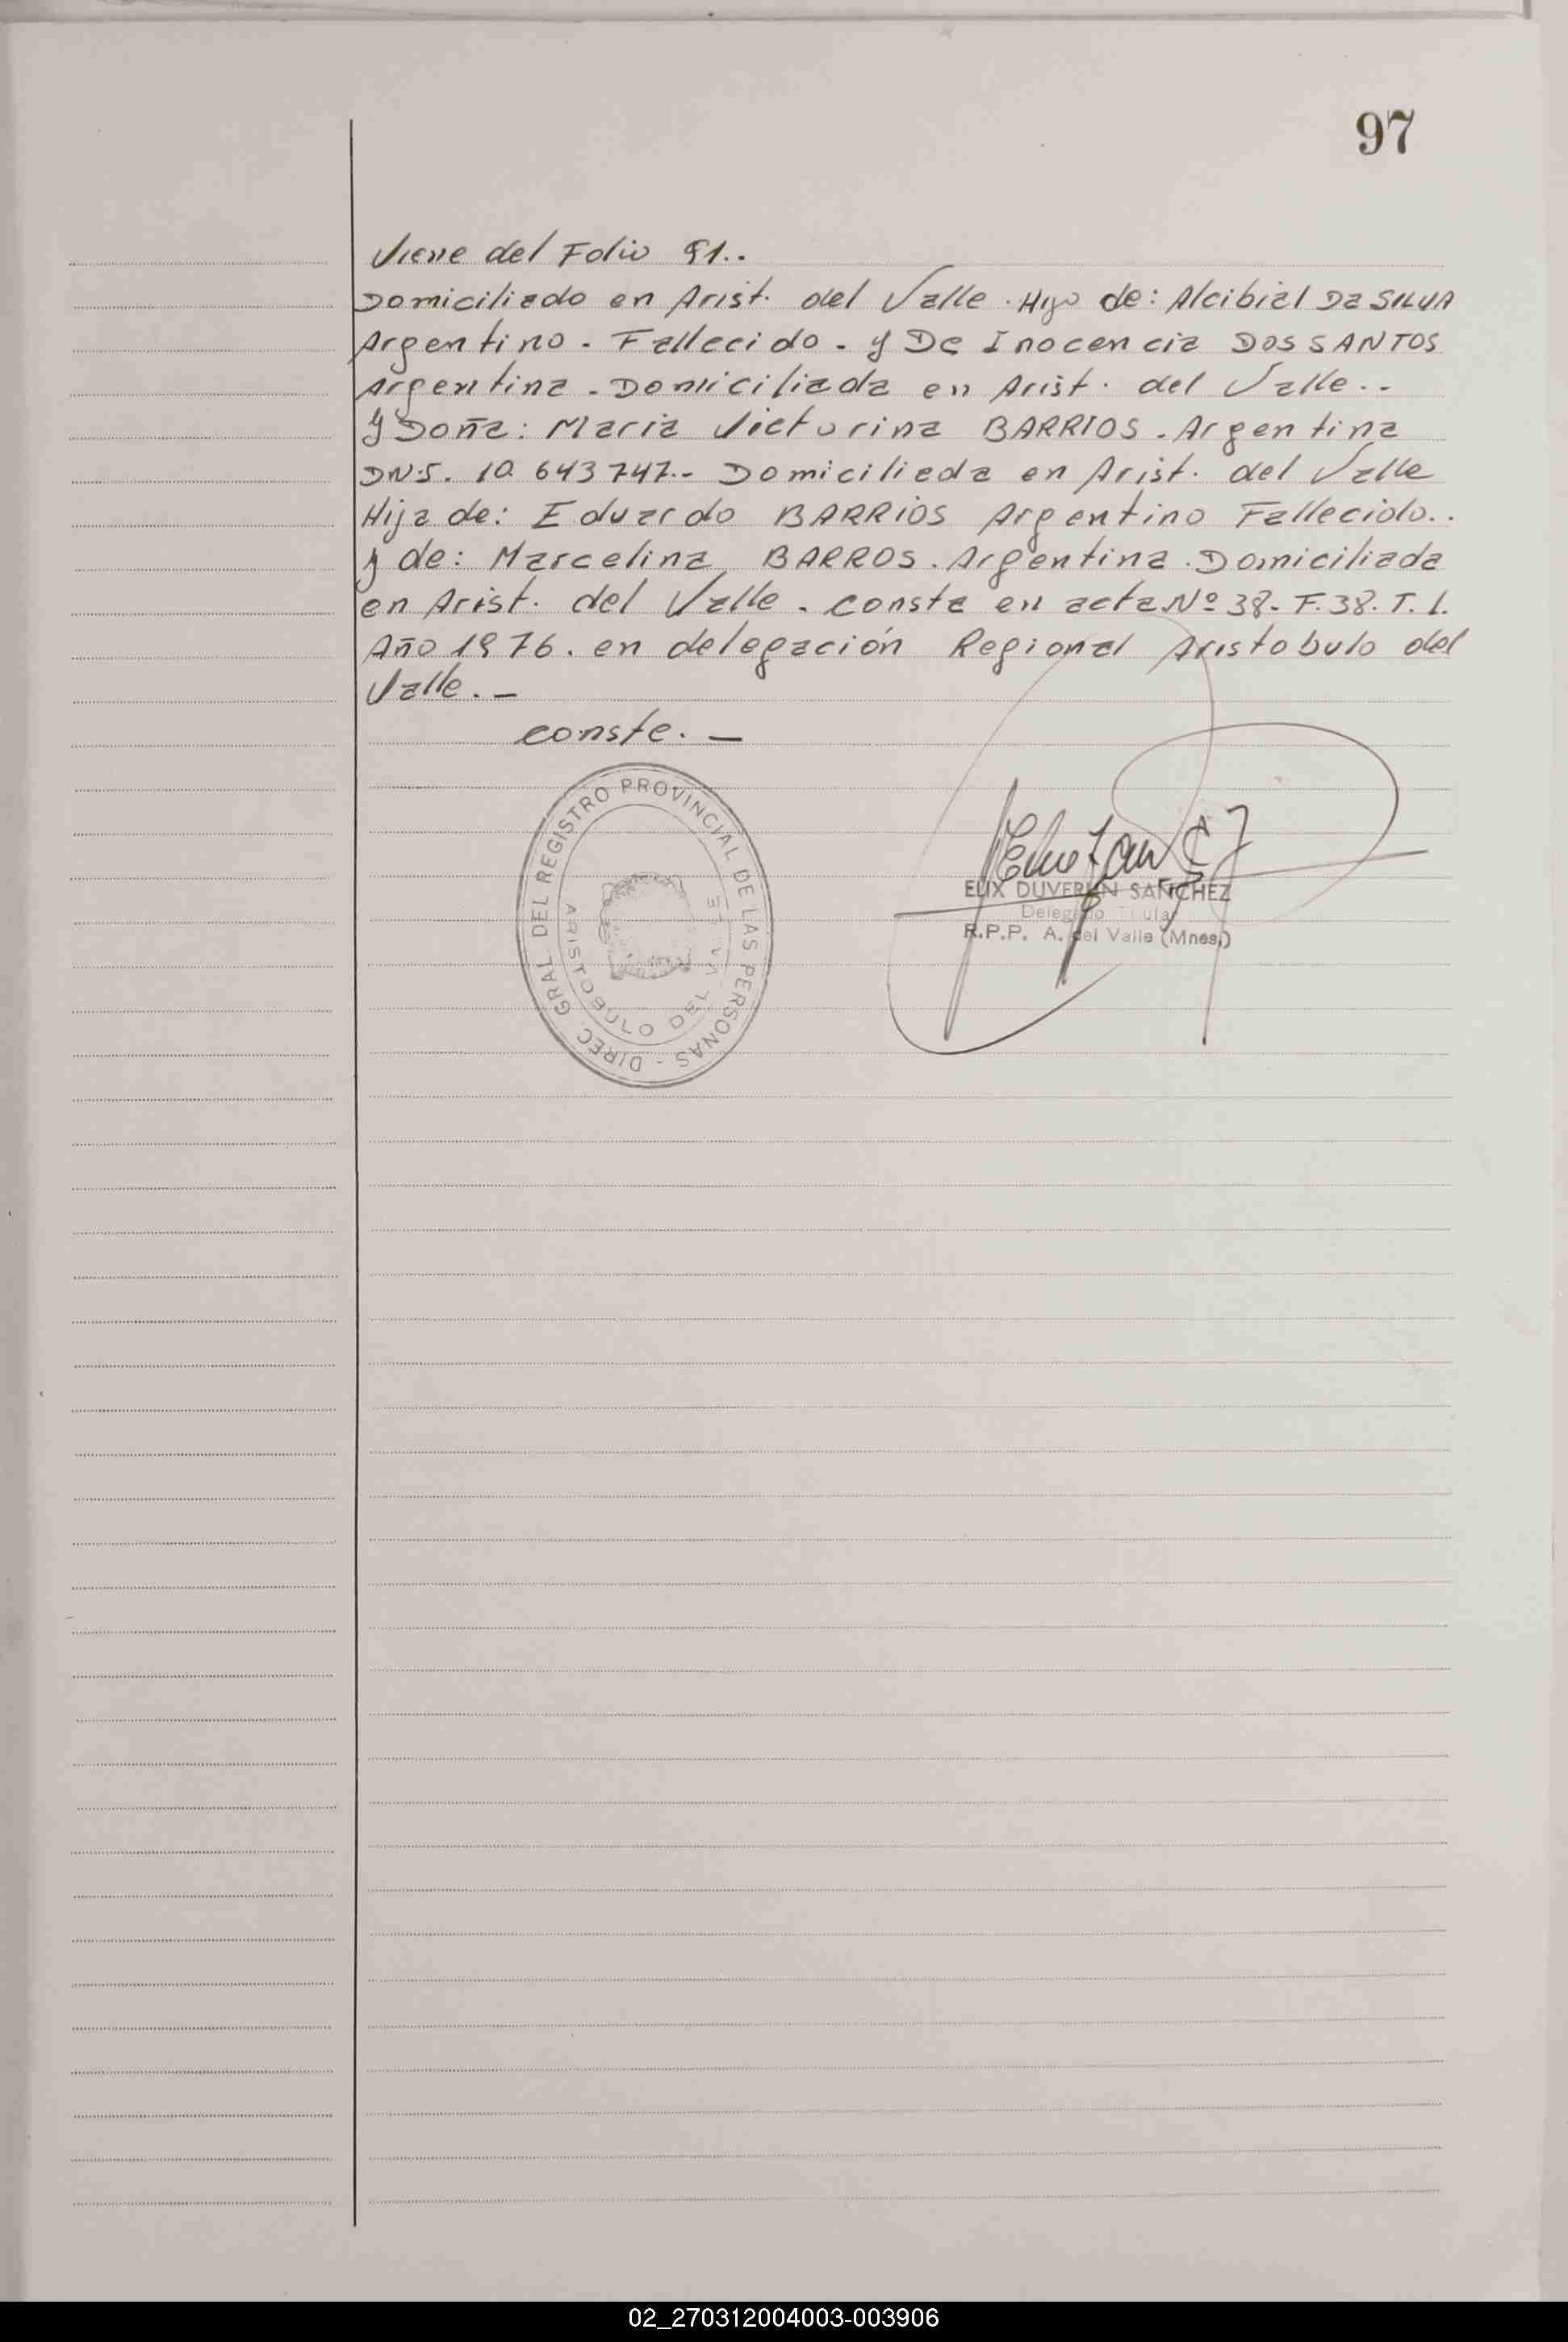 97
Viene del Folio 91..
Domiciliado en Arist. del Valle. Hijo de: Alcibial Da SILVA
Argentino. Fallecido. y De Inocencia DOS SANTOS
Argentina. Domiciliada en Arist. del Valle..
y Doña: Maria Victorina BARRIOS. Argentina
DN.I. 10.643747.- Domiciliada en Arist. del Valle
Hija de: Eduardo BARRIOS Argentino Fallecido..
y de: Marcelina BARROS. Argentina. Domiciliada
en Arist. del Valle. consta en acta Nº 38. F. 38. T. I.
Año 1976. en delegación Regional Aristobulo del
Valle. -
conste. -
DIREC. GRAL. DEL REGISTRO PROVINCIAL DE LAS PERSONAS -
ARISTOBULO DEL VALLE
ELIX DUVERLIN SANCHEZ
Delegado Titular
R.P.P. A. del Valle (Mnes.)
02_270312004003-003906